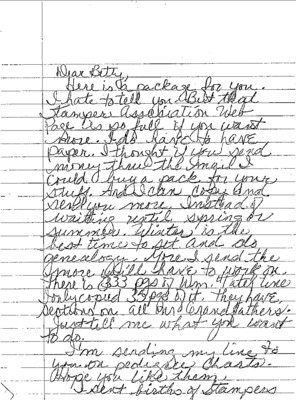 Dear Betty,
Here is a package for you.
I hate to tell you. But that
Stampers Association Web
Page is so full if you want
more. I do have to have
paper. I thought if you send
money thru the mail I
could buy a pack for your
stuff. And I can copy and
send you more. Instead of
waiting until spring or
summer. Winter is the
best time to sit and do
genealogy. More I send the
more you'll have to work on
There is 333 pgs of Wm. Tate line
I only copied 35 pgs of it. They have
sections on all our grandfathers.
Just tell me what you want
to do.
I'm sending my line to
you on pedigree charts.
Hope you like them.
I sent births of Stampers